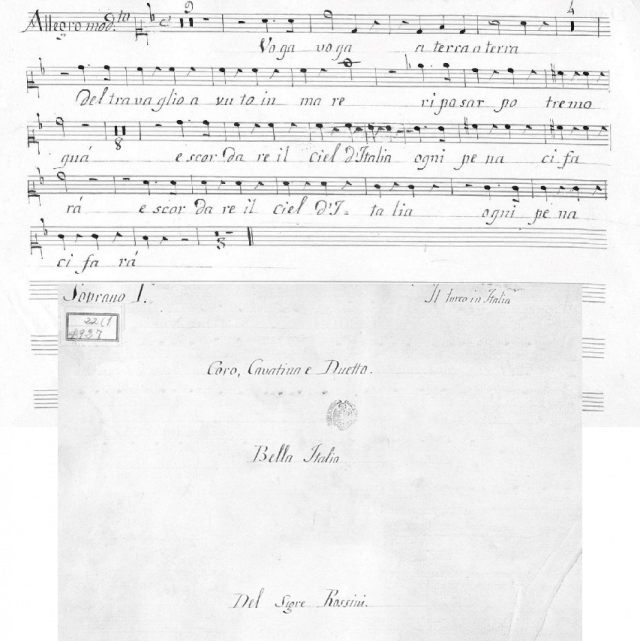 Allegro mod:to
2
4
Voga voga a terra a terra
Del travaglio a vuto in mare riposar potremo
8
quá e scordare il ciel d'Italia ogni pena ci fa
rá e scordare il ciel d'Italia ogni pena
5
ci fa rá
Soprano I.
Il turco in Italia
22(1
4937
Coro, Cavatina e Duetto.
Bella Italia
Del Sigre Rossini.